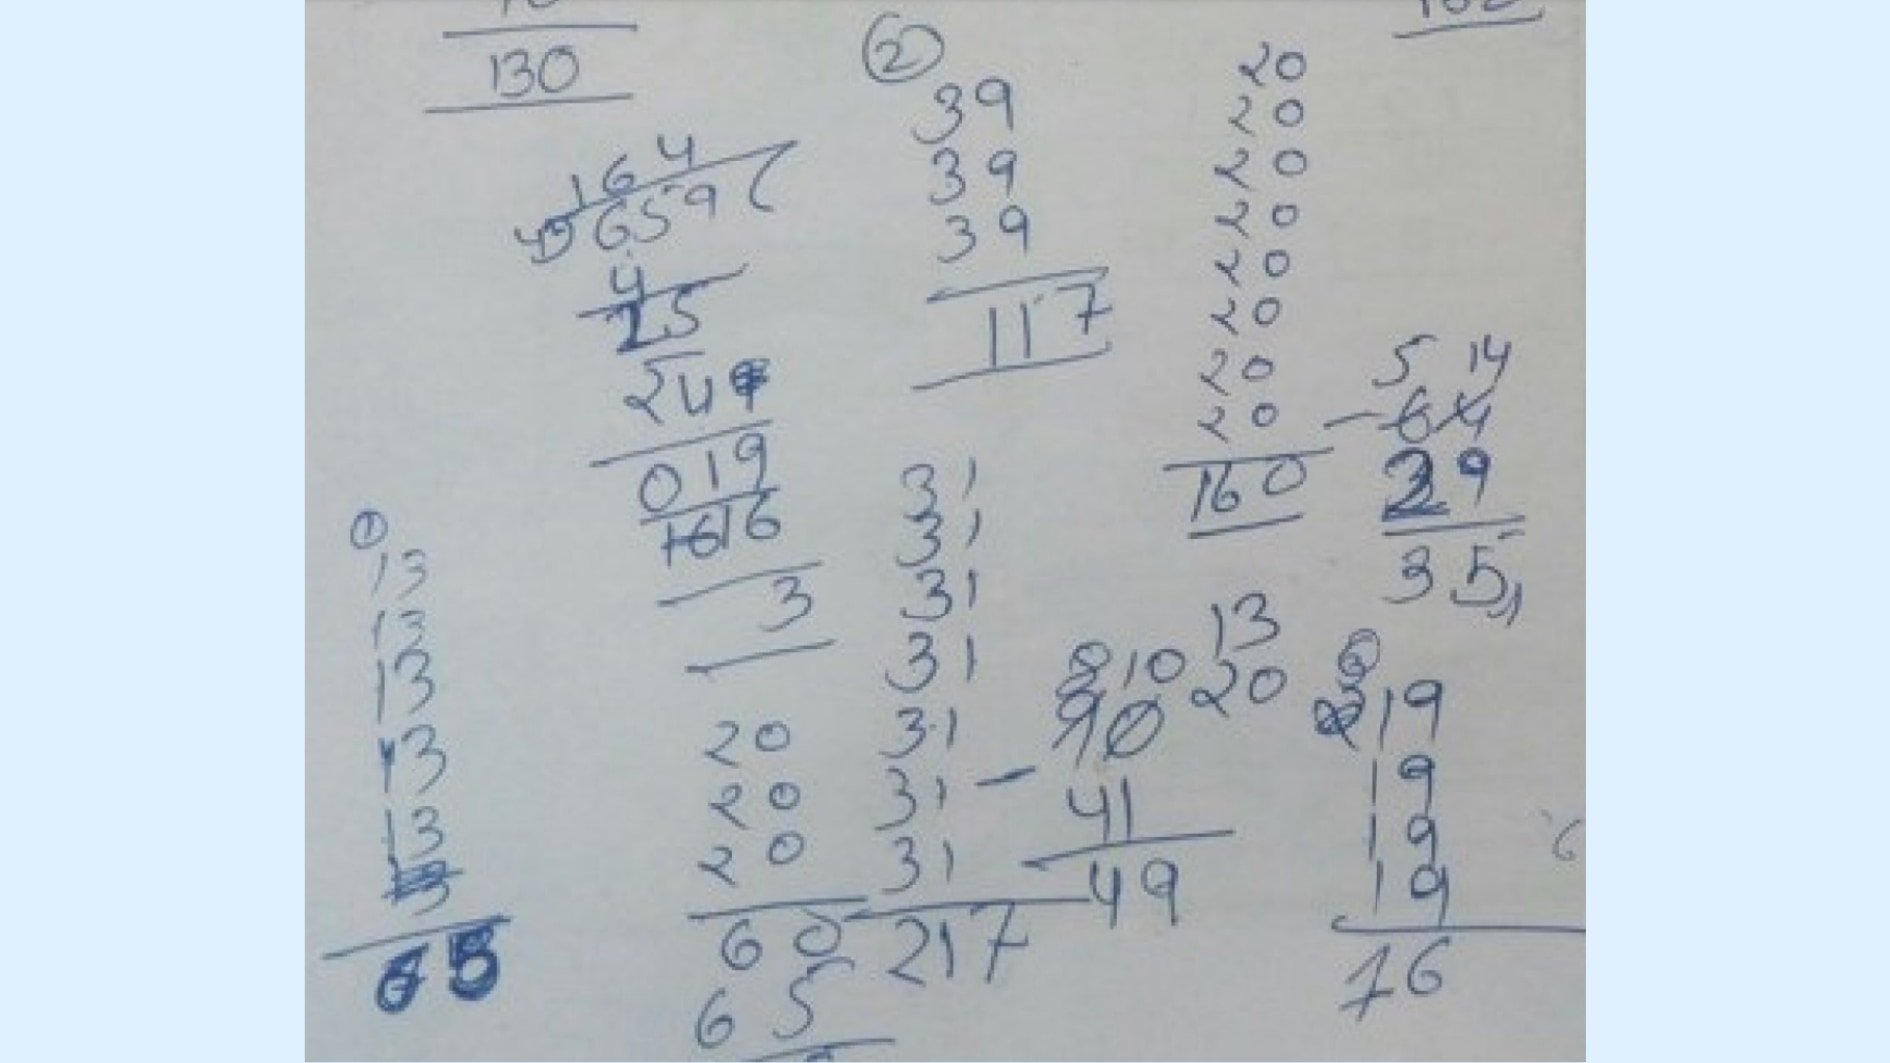 130
164
4) 659 (
4
25
24
019
16 16
3
②
39
39
39
117
20
20
20
20
20
20
20
20
160
5 14
- 64
29
35
①
13
13
13
13
13
65
20
20
20
60
65
31
31
31
31
31
31
31
217
13
20
8 10
- 90
41
49
⑥
19
19
19
19
76